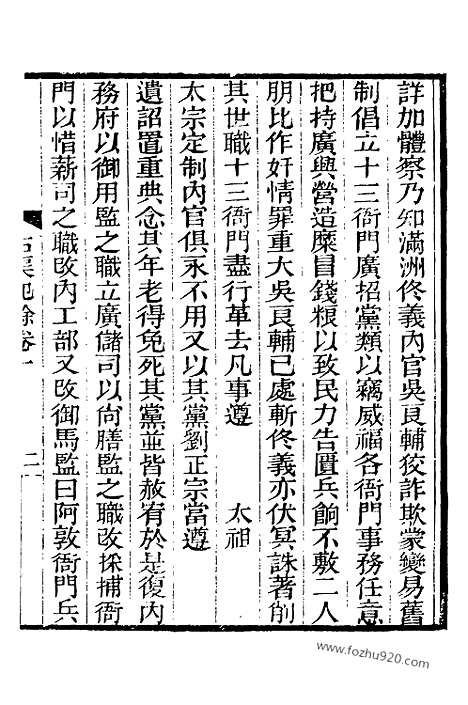 詳加體察乃知滿洲佟義內官吳良輔狡詐欺蒙變易舊
制倡立十三衙門廣招黨類以竊威福各衙門事務任意
把持廣興營造糜冒錢糧以致民力告匱兵餉不敷二人
朋比作奸情罪重大吳良輔已處斬佟義亦伏冥誅著削
其世職十三衙門盡行革去凡事遵　太祖
太宗定制內官俱永不用又以其黨劉正宗當遵
遺詔置重典念其年老得免死其黨並皆赦宥於是復內
務府以御用監之職立廣儲司以尚膳監之職改採捕衙
門以惜薪司之職改內工部又改御馬監曰阿敦衙門兵
石渠餘卷一
二
www.fozhu920.com